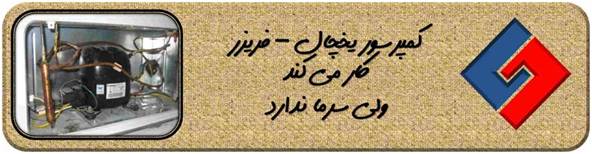 کمپرسور یخچال - فریزر
کار می کند
ولی سرما ندارد